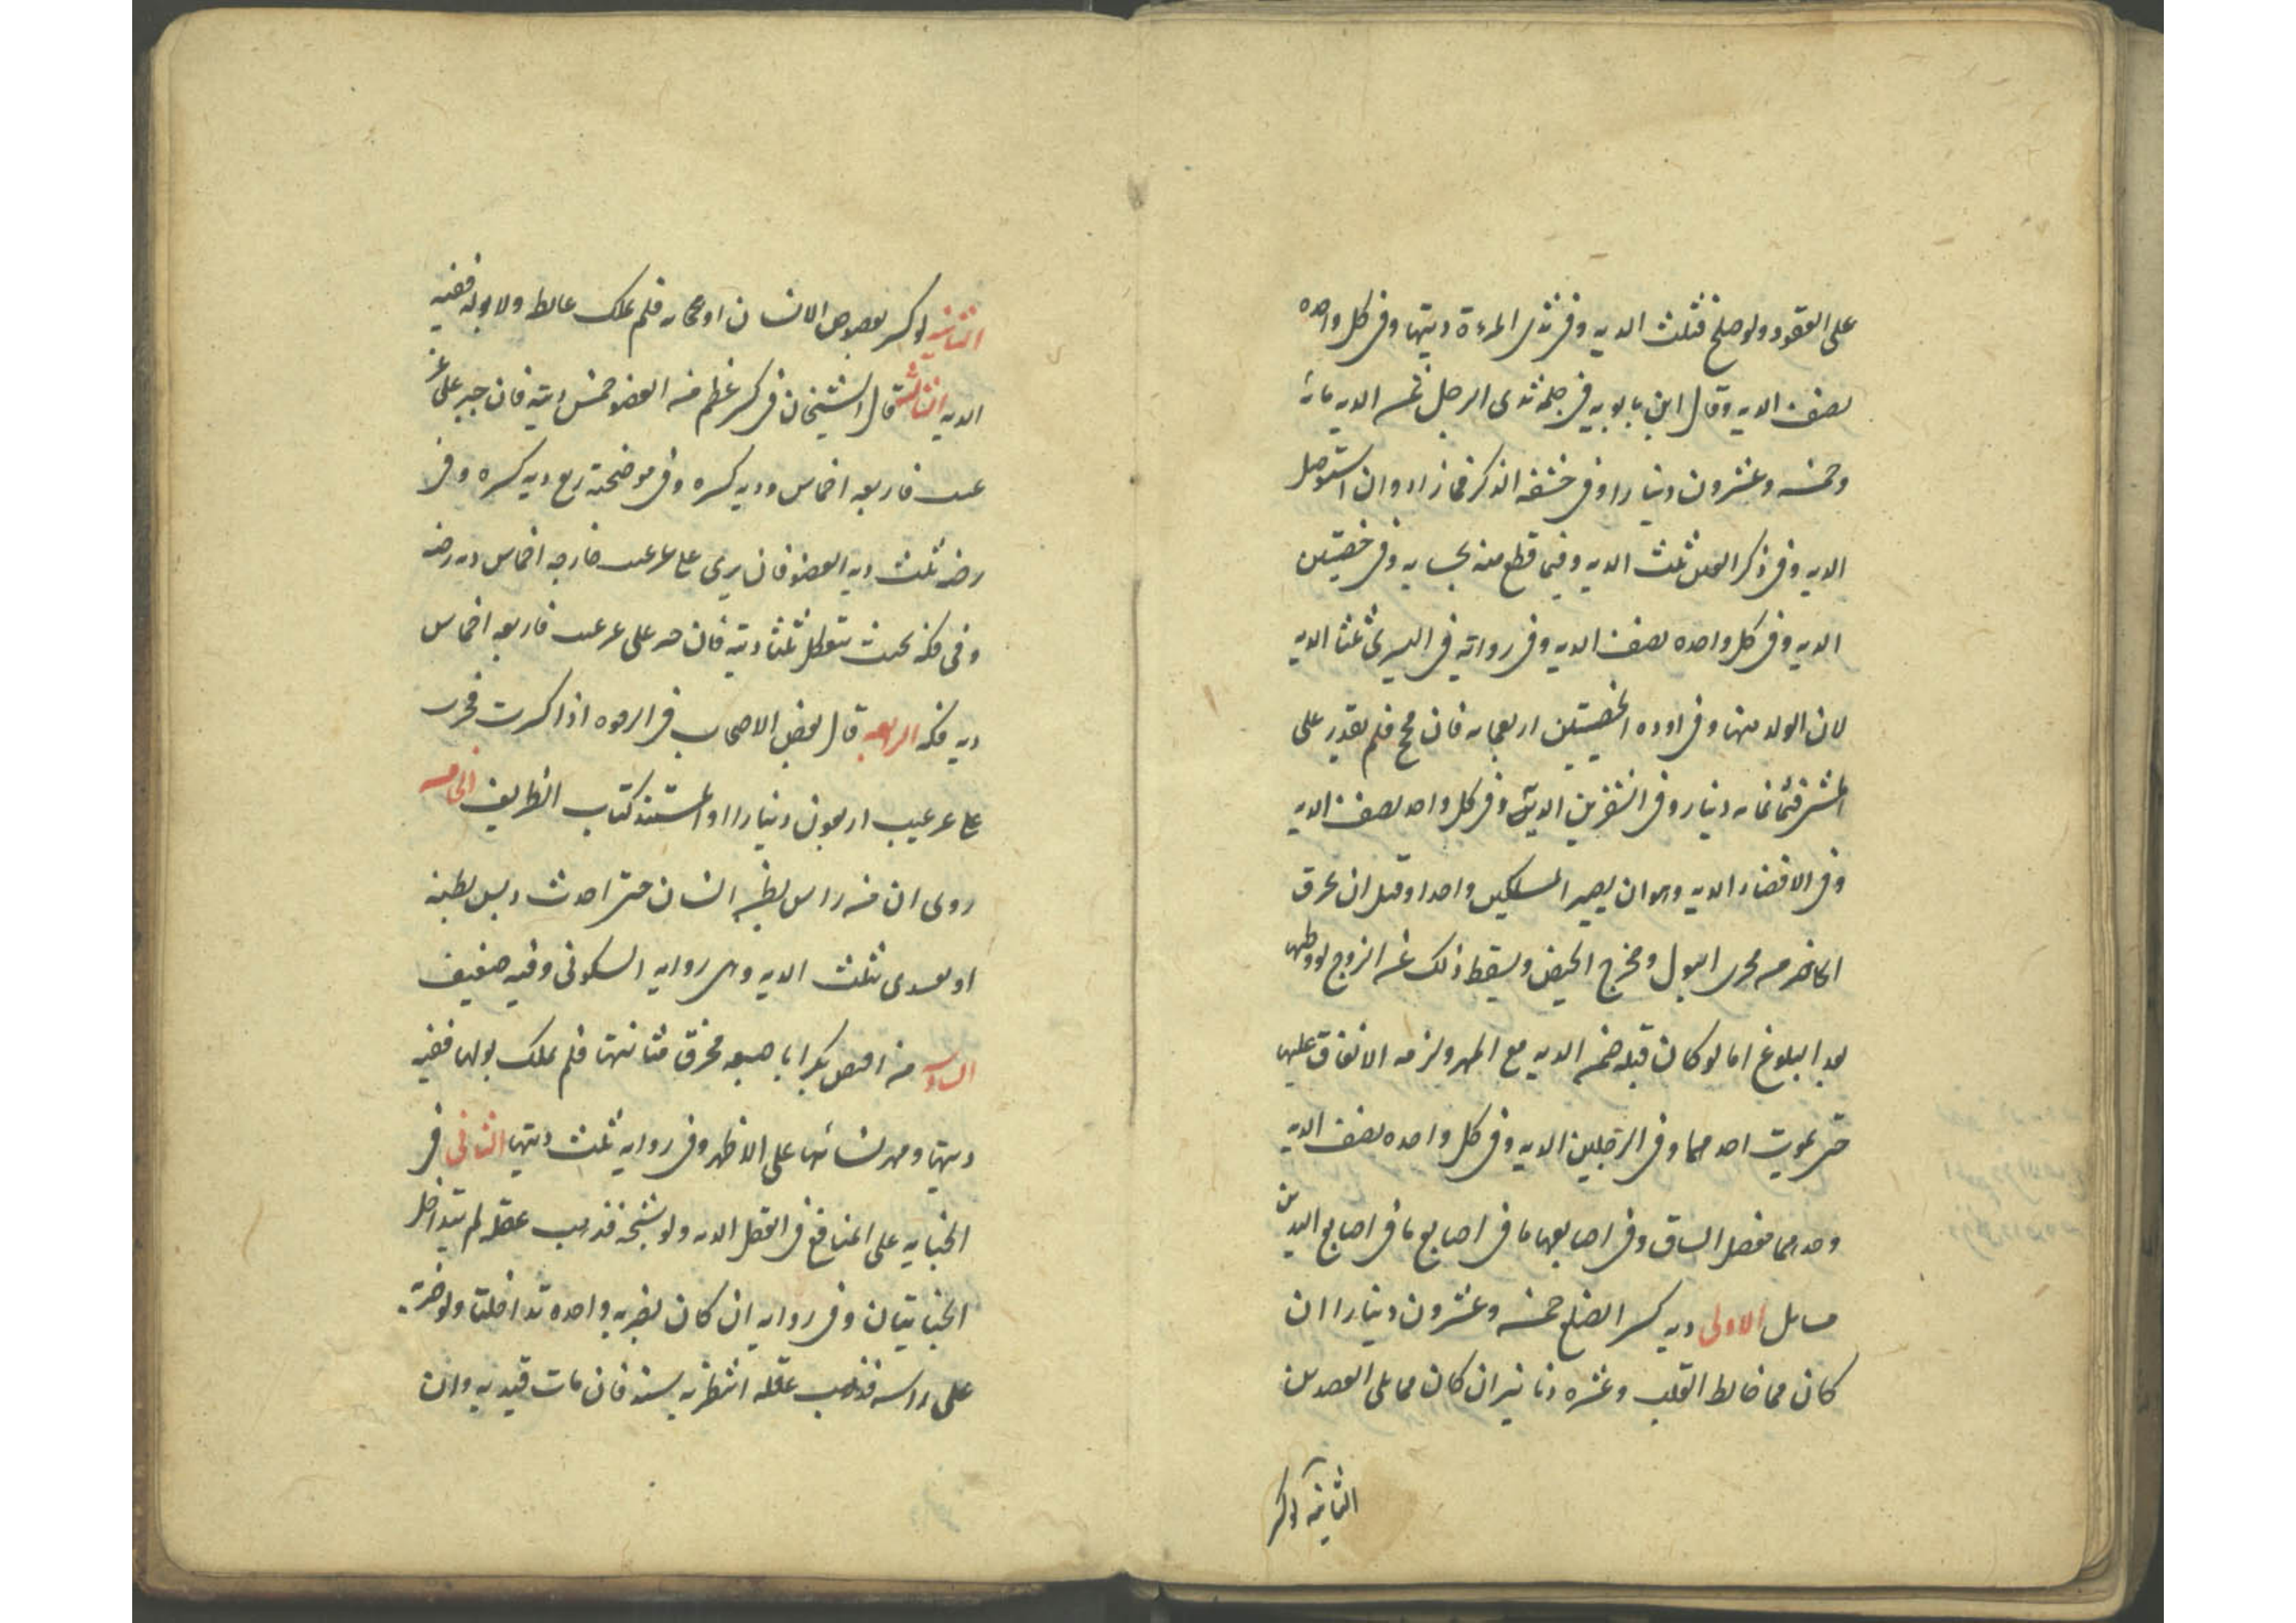 على القعود ولو صلح فثلث الديه وفى ثدى المرءة ديتها وفى كل واحده
نصف الديه وقال ابن بابويه فى حلمة ثدى الرجل ثمن الديه مائه
وخمسه وعشرون دينارا وفى حشفه الذكر فما زاد وان استوصل
الديه وفى ذكر العنين ثلث الديه وفيما قطع منه بحسابه وفى خصيتين
الديه وفى كل واحده نصف الديه وفى روايه فى اليسرى ثلثا الديه
لان الولد منها وفى ادره الخصيتين اربعمايه فان فحج فلم يقدر على
المشى فثمانمايه دينار وفى الشفرين الديه وفى كل واحد نصف الديه
وفى الافضاء الديه وهو ان يصير المسلكين واحدا وقيل ان يخرق
الحاجز بين مجرى البول ومخرج الحيض ويسقط ذلك عن الزوج لو وطيها
بعد البلوغ اما لو كان قبله ضمن الديه مع المهر ولزمه الانفاق عليها
حتى يموت احدهما وفى الرجلين الديه وفى كل واحده نصف الديه
وحدهما مفصل الساق وفى اصابعهما ما فى اصابع ما فى اصابع اليدين
مسايل الاولى ديه كسر الضلع خمسه وعشرون دينارا ان
كان مما خالط القلب وعشره دنانير ان كان مما يلى العضدين
الثانيه لو كسر
الثانيه لو كسر بعصوص الانسان او عجانه فلم يملك غائطه ولا بوله ففيه
الديه الثالثه قال الشيخان فى كسر عظم من العضو خمس ديته فان جبر على غير
عيب فاربعه اخماس ديه كسره وفى موضحته ربع ديه كسره وفى
رضه ثلث ديه العضو فان برى على غير عيب فاربعه اخماس ديه رضه
وفى فكه بحيث يتعطل ثلثا ديته فان جبر على غير عيب فاربعه اخماس
ديه فكه الرابعه قال بعض الاصحاب فى الترقوه اذا كسرت فجبرت
على غير عيب اربعون دينارا والمستند كتاب الظريف الخامسه
روى ان من داس بطن انسان حتى احدث ديس بطنه
او يفتدى بثلث الديه وهى روايه السكونى وفيه ضعف
السادسه من افتض بكرا باصبعه فخرق مثانتها فلم يملك بولها ففيه
ديتها ومهر نسائها على الاظهر وفى روايه ثلث ديتها الثانى فى
الجنايه على المنافع فى العقل الديه ولو شجه فذهب عقله لم يتداخل
الجنايتان وفى روايه ان كان بضربه واحده تداخلتا ولو ضربه
على راسه فذهب عقله انتظر به سنه فان مات قيد به وان